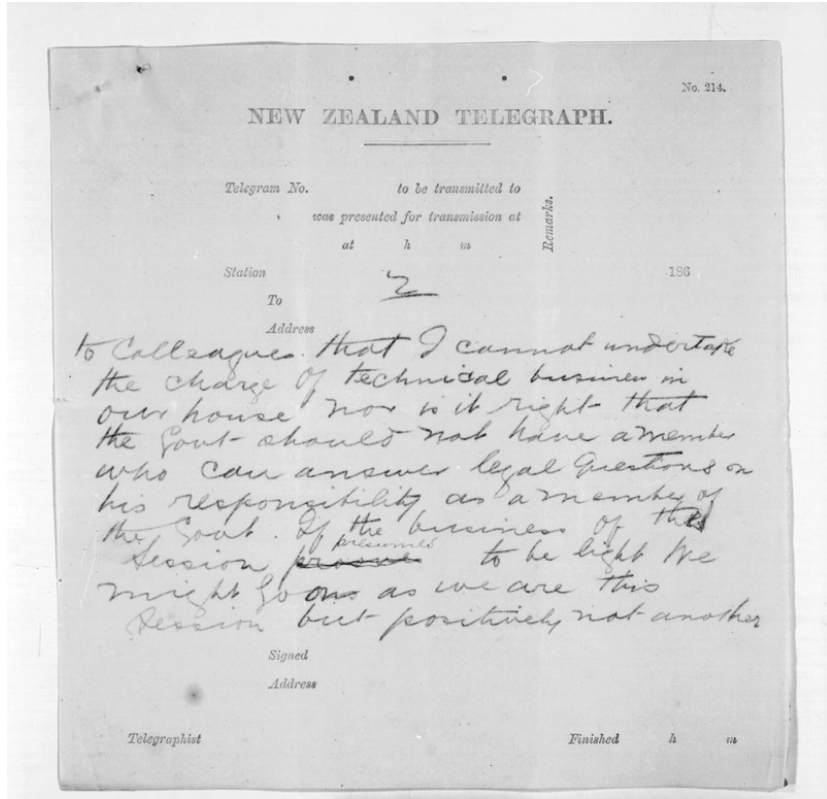 No. 214.
NEW ZEALAND TELEGRAPH.
Telegram No. to be transmitted to
was presented for transmission at
at h m
Remarks.
Station 186
2
To
Address
to Colleagues that I cannot undertake
the charge of technical business in
our house nor is it right that
the Govt should not have a member
who can answer legal Questions on
his responsibility as a member of
the Govt. If the business of the
presumed
Session to be light We
might go on as we are this
Session but positively not another
Signed
Address
Telegraphist Finished h m